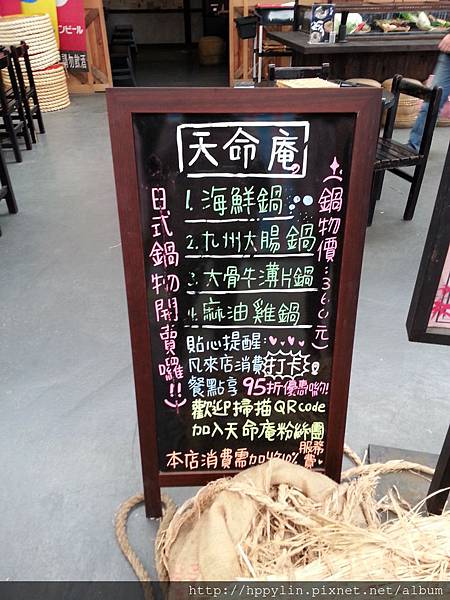 天命庵
日式鍋物開賣囉!!
1. 海鮮鍋
2. 九州大腸鍋
3. 大骨牛薄片鍋
4. 麻油雞鍋
鍋物價:360元
貼心提醒:
凡來店消費打卡
餐點享95折優惠喲!
歡迎掃描QR code
加入天命庵粉絲團
本店消費需加收10%服務費
http://hppylin.pixnet.net/album